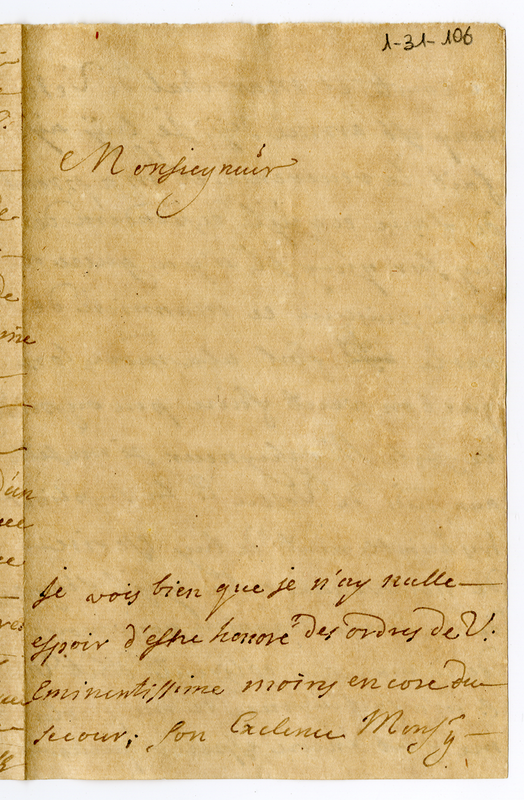 1-31-106
Monsieyneúr
Je vois bien que je n'ay nulle
espoir d'estre honoré des ordres de V:
Eminentissime moins encore du
secour; son Exclence Monsg